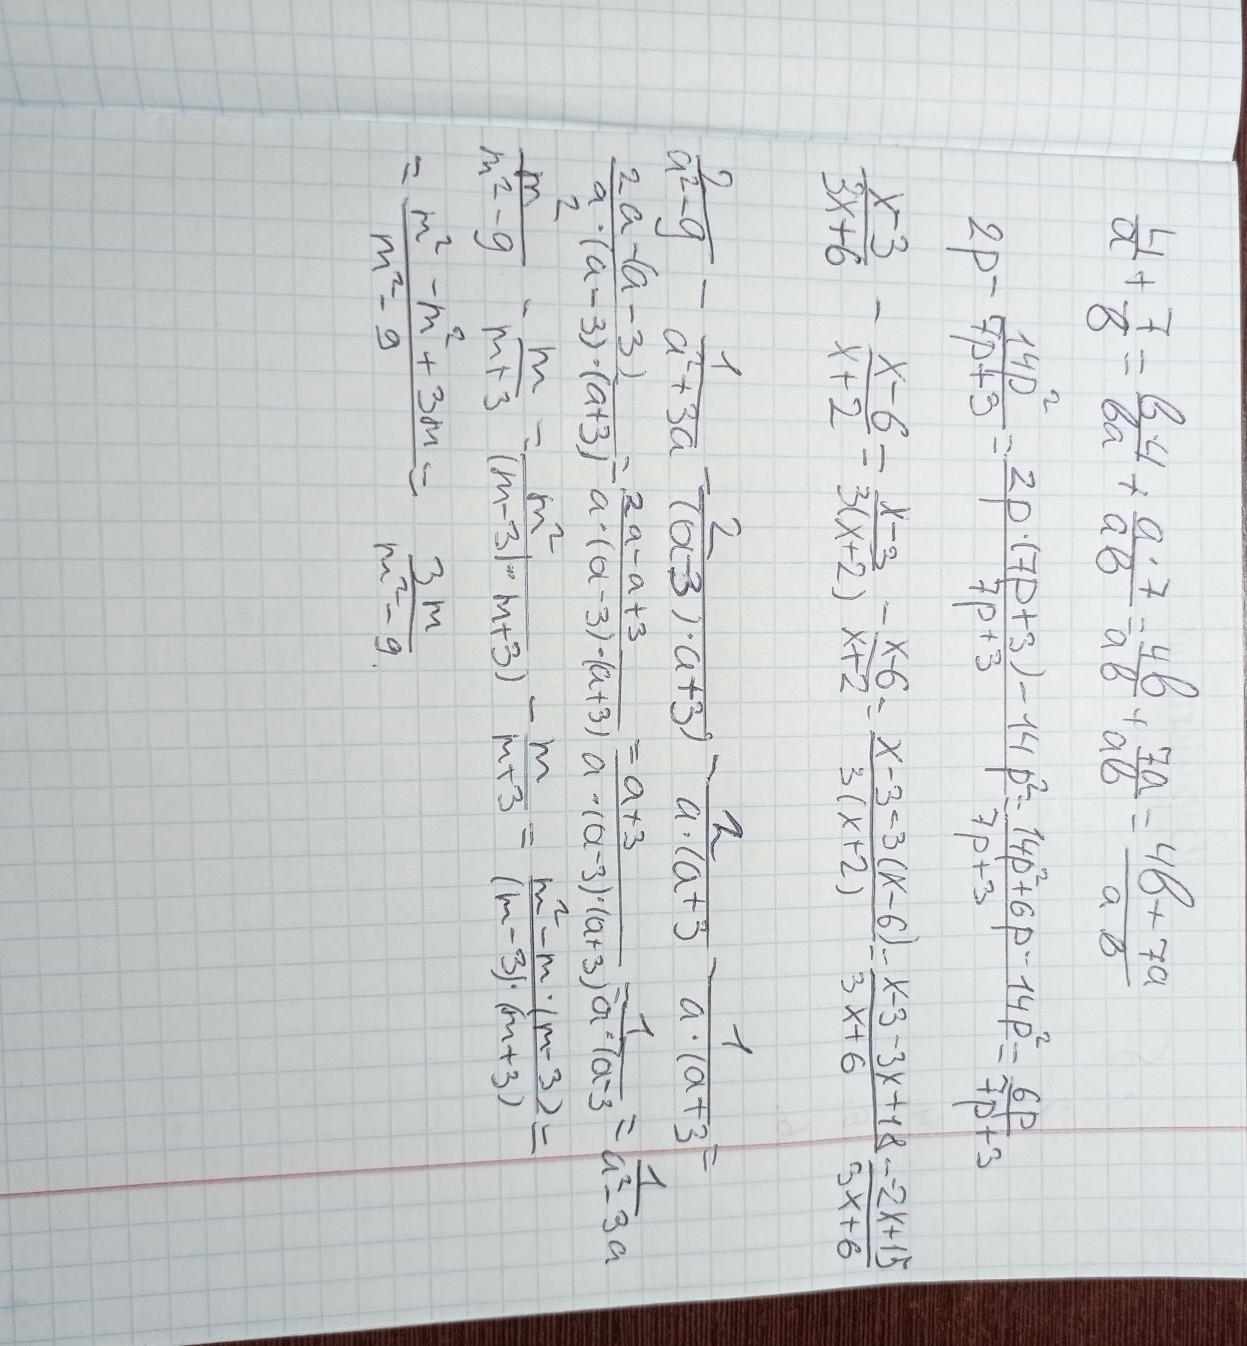 4/a + 7/b = b·4/ba + a·7/ab = 4b/ab + 7a/ab = 4b+7a/ab
2p - 14p²/7p+3 = 2p·(7p+3)-14p²/7p+3 = 14p²+6p-14p²/7p+3 = 6p/7p+3
x-3/3x+6 - x-6/x+2 = x-3/3(x+2) - x-6/x+2 = x-3-3(x-6)/3(x+2) = x-3-3x+18/3x+6 = -2x+15/3x+6
2/a²-9 - 1/a²+3a = 2/(a-3)·a+3) - 2/a·(a+3 - 1/a·(a+3 =
2a-(a-3)/a·(a-3)·(a+3) = 2a-a+3/a·(a-3)·(a+3) = a+3/a·(a-3)·(a+3) = 1/a·(a-3 = 1/a²-3a
m²/m²-9 - m/m+3 = m²/(m-3)·m+3) - m/m+3 = m²-m·(m-3)/(m-3)·(m+3) =
= m²-m²+3m/m²-9 = 3m/m²-9.